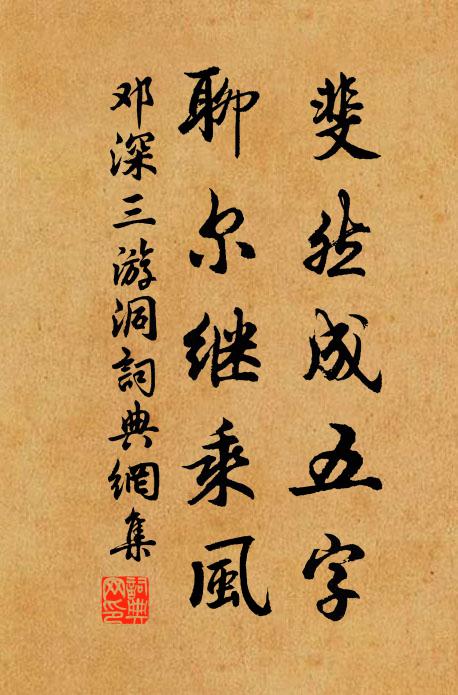 斐然成五字
聊尔继乘風
邓深三游洞詞典網集
詞典網印